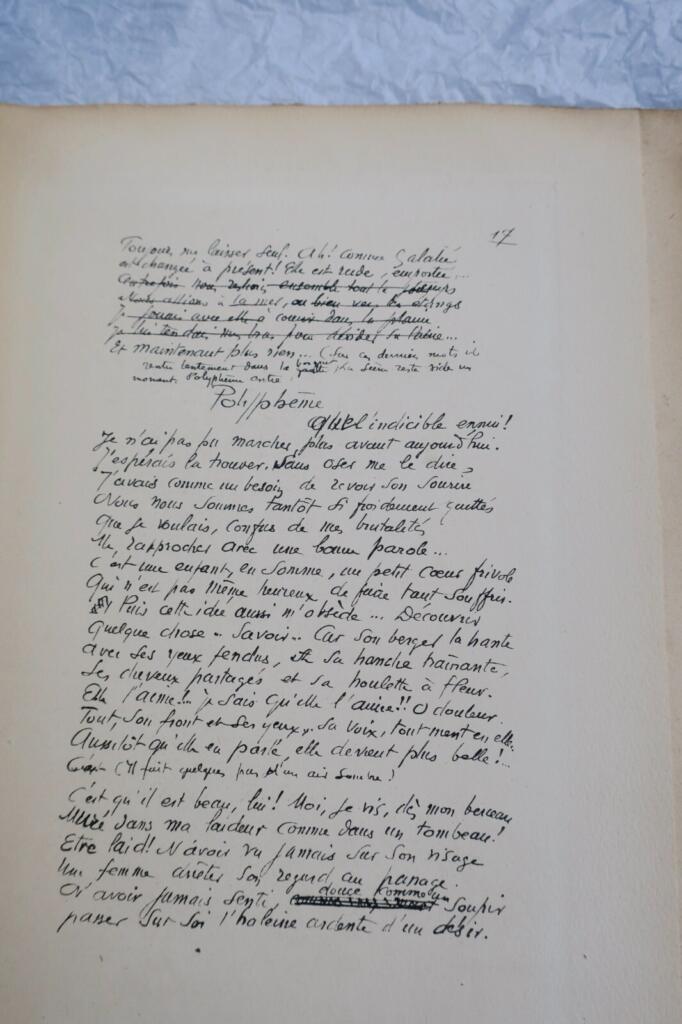 17
Toujours me laisser seul. Ah! Comme Galatée
est changée à présent! Elle est rude, emportée...
Autrefois nous restions ensemble tout le
Nous allions à la mer, ou bien vers les étangs
Je jouais avec elle à courir dans la plaine
Je lui tendais mes bras pour
Et maintenant plus rien... (Sur ces derniers mots il
rentre lentement dans la grotte; la Scène reste vide un
moment. Polyphème entre
Polyphème
Quel indicible ennui!
Je n'ai pas pu marcher plus avant aujourd'hui.
J'espérais la trouver. Sans oser me le dire,
J'avais comme un besoin de revoir son sourire
Nous nous sommes tantôt si froidement quittés
Que je voulais, confus de mes brutalités
Me rapprocher avec une bonne parole...
C'est une enfant, en somme, un petit coeur frivole
Qui n'est pas même heureux de faire tant souffrir.
Puis cette idée aussi m'obsède... Découvrir
Quelque chose.. Savoir.. Car son berger la hante
avec ses yeux fendus, sa hanche traînante,
Ses cheveux partagés et sa houlette à fleur.
Elle l'aime!.. je sais qu'elle l'aime!! O douleur.
Tout, son front et ses yeux, sa voix, tout ment en elle.
Aussitôt qu'elle en parle, elle devient plus belle!...
(Il fait quelques pas d'un air sombre)
C'est qu'il est beau, lui! Moi, je vis, dès mon berceau
Muré dans ma laideur comme dans un tombeau!
Etre laid! N'avoir vu jamais sur son visage
Une femme arrêter son regard au passage.
N'avoir jamais senti, douce comme un soupir
passer sur soi l'haleine ardente d'un désir.